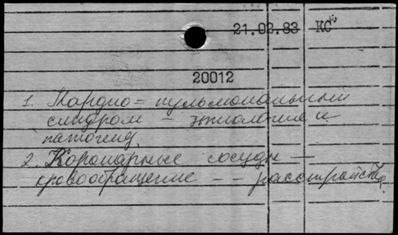 21.02.83 КС
20012
1. Кардио-пульмональный
синдром - этиология и
патоген.
2. Коронарные сосуды -
кровообращение -- расстройства